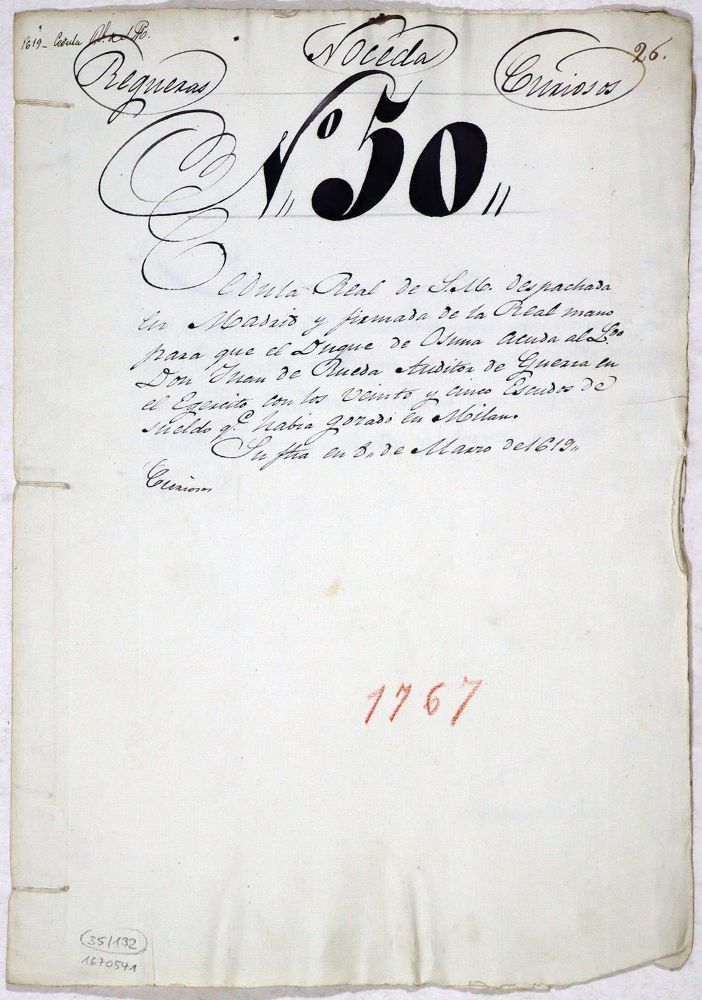 1619 - Cedula
Noceda
26.
Regueras
Curiosos
Nº 50
Cedula Real de S.M. despachada
en Madrid y firmada de la Real mano
para que el Duque de Osuna acuda al Ldo
Don Juan de Rueda Auditor de Guerra en
el Egercito con los Veinte y cinco Escudos de
sueldo q.e habia gozado en Milan.
Su fha en 8,, de Marzo de 1619,,
Curiosos
1767
35/132
1670541